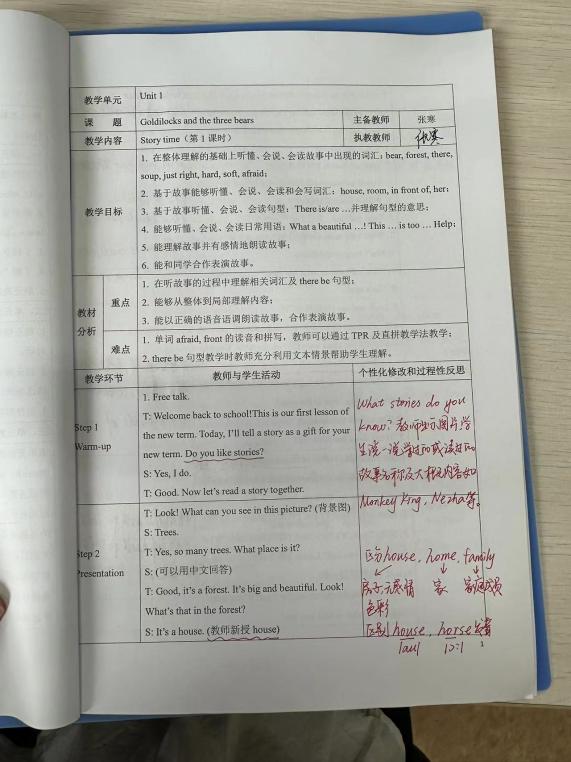 教学单元 Unit 1
课 题 Goldilocks and the three bears 主备教师 张寒
教学内容 Story time（第 1 课时） 执教教师 张寒
教学目标
1. 在整体理解的基础上听懂、会说、会读故事中出现的词汇: bear, forest, there,
soup, just right, hard, soft, afraid;
2. 基于故事能够听懂、会说、会读和会写词汇: house, room, in front of, her;
3. 基于故事听懂、会说、会读句型: There is/are …并理解句型的意思;
4. 能够听懂、会说、会读日常用语: What a beautiful …! This … is too … Help;
5. 能理解故事并有感情地朗读故事;
6. 能和同学合作表演故事。
教材分析
重点
1. 在听故事的过程中理解相关词汇及 there be 句型;
2. 能够从整体到局部理解内容;
3. 能以正确的语音语调朗读故事，合作表演故事。
难点
1. 单词 afraid, front 的读音和拼写，教师可以通过 TPR 及直拼教学法教学;
2. there be 句型教学时教师充分利用文本情景帮助学生理解。
教学环节 教师与学生活动 个性化修改和过程性反思
Step 1
Warm-up
1. Free talk.
T: Welcome back to school!This is our first lesson of
the new term. Today, I'll tell a story as a gift for your
new term. Do you like stories?
S: Yes, I do.
T: Good. Now let's read a story together.
What stories do you
know? 教师出示图片,学
生说一说学过的或读过的
故事名称及大概内容如
Monkey King, Nezha等。
Step 2
Presentation
T: Look! What can you see in this picture? (背景图)
S: Trees.
T: Yes, so many trees. What place is it?
S: (可以用中文回答)
T: Good, it's a forest. It's big and beautiful. Look!
What's that in the forest?
S: It's a house. (教师新授 house)
区分house, home, family
房子无感情 家 家庭成员
色彩
区别 house, horse 发音
/au/ /ɔ:/
1